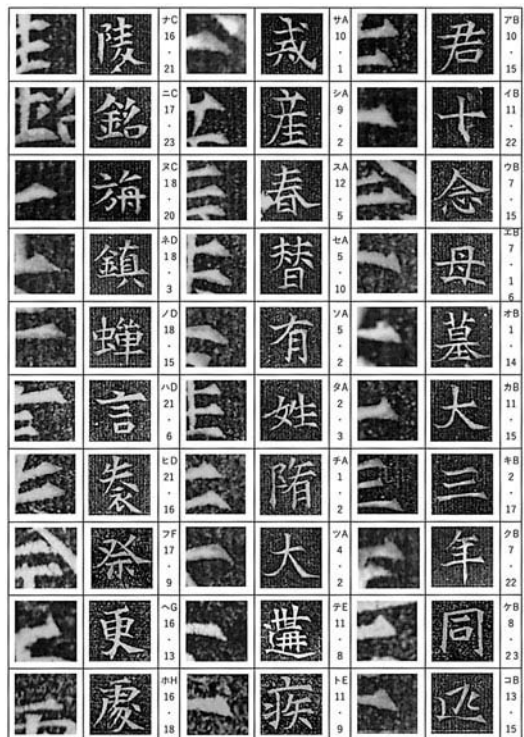 アB 10・15 君
イB 11・22 十
ウB 7・15 念
エB 7・16 母
オB 1・14 墓
カB 11・15 大
キB 2・17 三
クB 7・22 年
ケB 8・23 同
コB 13・15
サA 10・1
シA 9・2 産
スA 12・5 春
セA 5・10 替
ソA 5・2 有
タA 2・3 姓
チA 1・2 隋
ツA 4・2 大
テE 11・8
トE 11・9 疾
ナC 16・21 陵
ニC 17・23 銘
ヌC 18・20
ネD 18・3 鎮
ノD 18・15 蟬
ハD 21・6 言
ヒD 21・16
フF 17・9 祭
ヘG 16・13 更
ホH 16・18